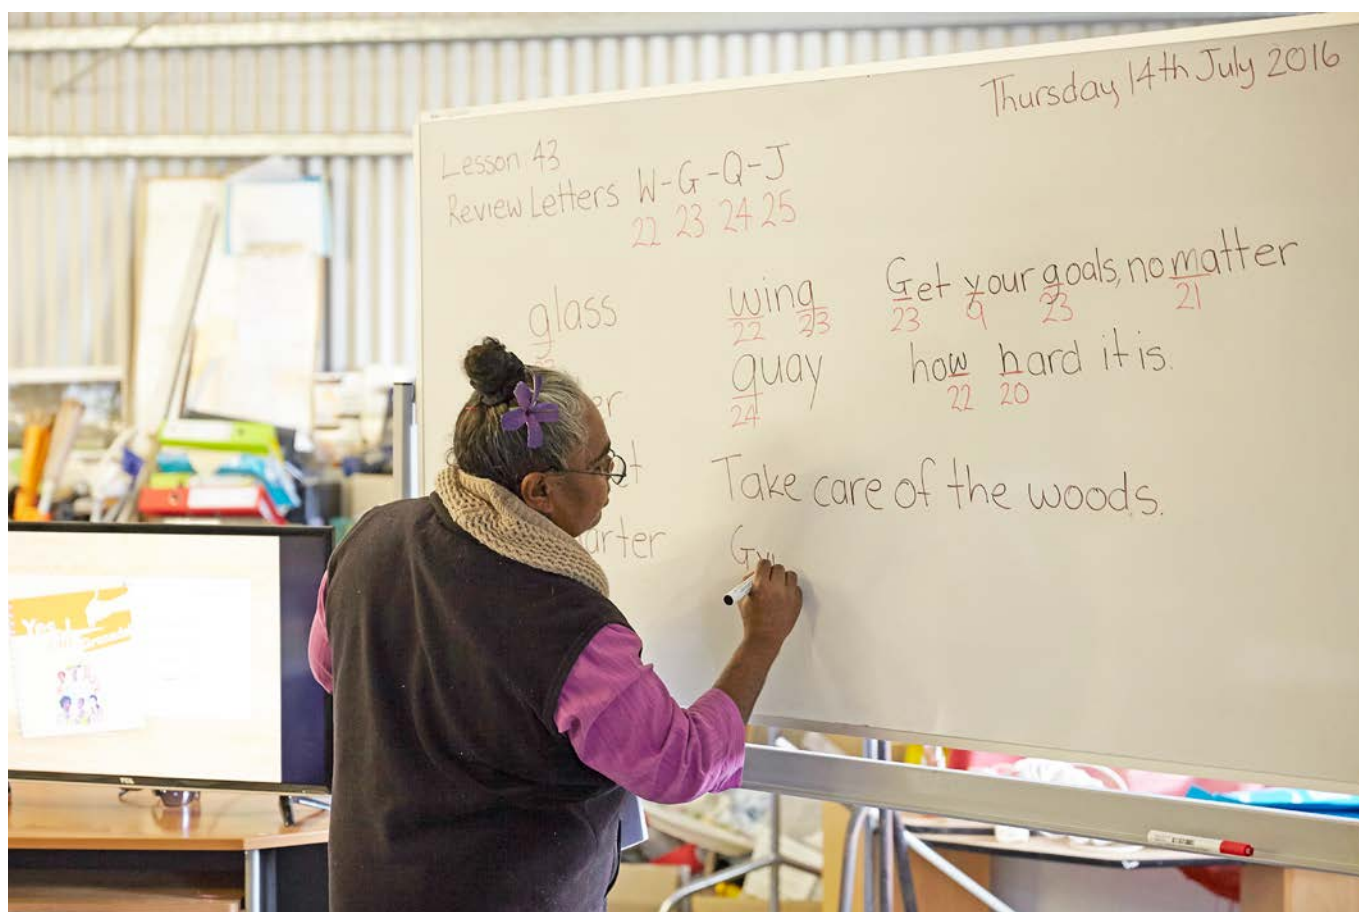 Thursday 14th July 2016
Lesson 43
Review Letters W-G-Q-J
22 23 24 25
glass
er
t
arter
wing
22 23
quay
24
Get your goals, no matter
23 9 23 21
how hard it is.
22 20
Take care of the woods.
Yes, I
TCL